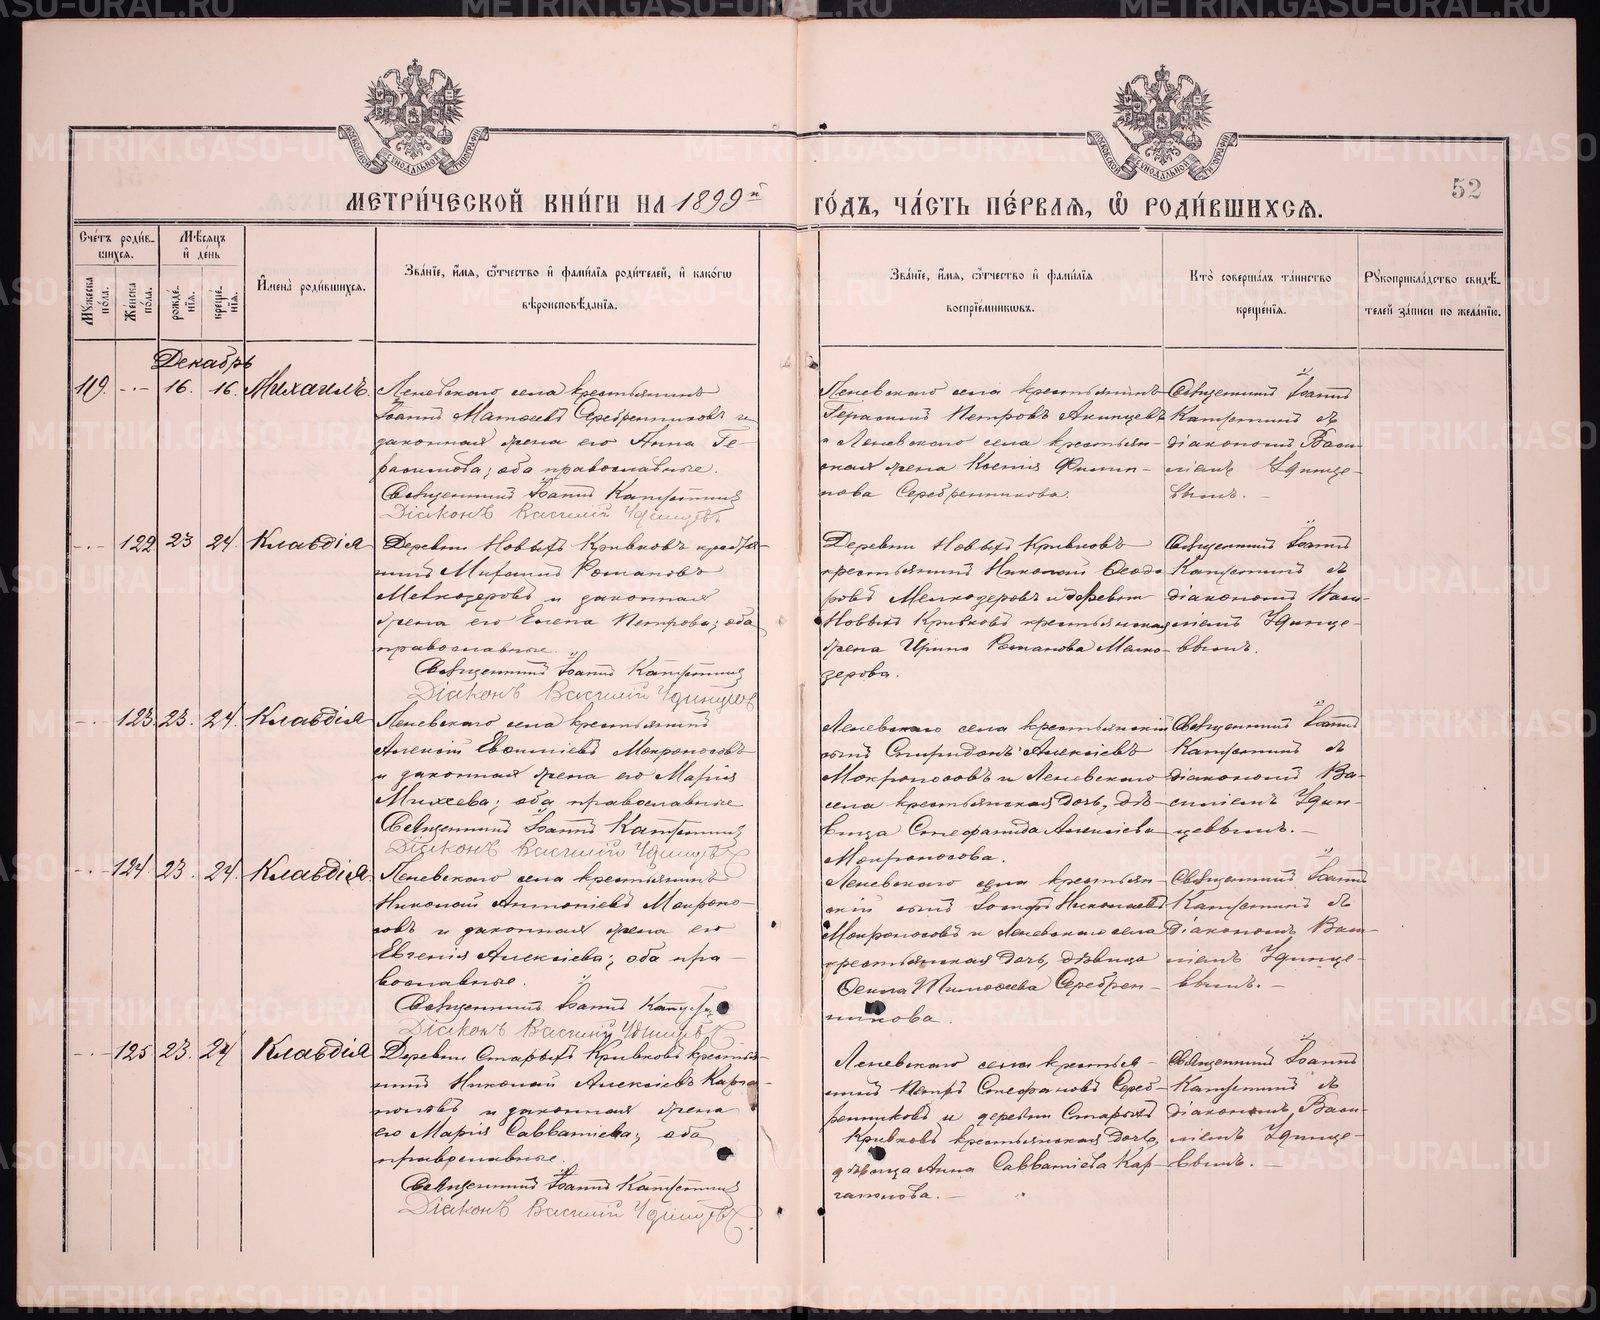 МЕТРИ́ЧЕСКОЙ КНИ́ГИ НА 1899й ГО́ДЪ, ЧА́СТЬ ПЕ́РВАЯ, Ѽ РОДИ́ВШИХСѦ.
52
Сче́тъ роди́в-
шихся.
Мꙋжеска по́ла.
Же́нска по́ла.
Мѣ́сяцъ и҆ де́нь
рожде́-
нїя.
креще́-
нїя.
И҆мена̀ роди́вшихся.
Зва́нїе, и҆́мя, ѻ҆́тчество и҆ фами́лїя роди́телей, и҆ како́гѡ
вѣроисповѣ́данїя.
Зва́нїе, и҆́мя, ѻ҆́тчество и҆ фами́лїя
воспрїе́мникѡвъ.
Кто̀ соверша́лъ та́инство
креще́нїя.
Рꙋкоприкла́дство свидѣ́-
телей за́писи по жела́нїю.
Декабрь
119. -.- 16. 16. Михаилъ.
Леневскаго села крестьянинъ
Іоаннъ Матѳеевъ Серебренниковъ и
законная жена его Анна Ге-
расимова; оба православные.
Священникъ Іоаннъ Капустинъ
Діаконъ Василій Удинцевъ
Леневскаго села крестьянинъ
Герасимъ Петровъ Акинцевъ
и Леневскаго села крестьян-
ская жена Ксенія Филип-
пова Серебренникова.
Священникъ Іоаннъ
Капустинъ съ
діакономъ Васи-
ліемъ Удинце-
вымъ. -
-.- 122 23 24 Клавдія
Деревни Новыхъ Кривковъ крестья-
нинъ Романовъ
Мелкозеровъ и законная
жена его Елена Петрова; оба
православные.
Священникъ Іоаннъ Капустинъ
Діаконъ Василій Удинцевъ
Деревни Новыхъ Кривковъ
крестьянинъ Николай Ѳеодо
ровъ Мелкозеровъ и деревни
Новыхъ Кривковъ крестьянская
жена Ирина Романова Мелко-
зерова.
Священникъ Іоаннъ
Капустинъ съ
діакономъ Васи-
ліемъ Удинце-
вымъ.
-.- 123 23. 24. Клавдія
Леневскаго села крестьянинъ
Алексій Мокроносовъ
и законная жена его Марія
Михеева; оба православные
Священникъ Іоаннъ Капустинъ
Діаконъ Василій Удинцевъ
Леневскаго села крестьянскій
сынъ Спиридонъ Алексіевъ
Мокроносовъ и Леневскаго
села крестьянская дочь, дѣ-
вица Стефанида Алексіева
Мокроносова.
Священникъ Іоаннъ
Капустинъ съ
діакономъ Ва-
силіемъ Удин-
цевымъ. -
-.- 124. 23. 24. Клавдія.
Леневскаго села крестьянинъ
Николай Антоніевъ Мокроно-
совъ и законная жена его
Евгенія Алексіева; оба пра-
вославные.
Священникъ Іоаннъ Капустинъ
Діаконъ Василій Удинцевъ
Леневскаго села крестьян-
скій сынъ Іосифъ Николаевъ
Мокроносовъ и Леневскаго села
крестьянская дочь, дѣвица
Ѳекла Тимоѳеева Серебрен-
никова.
Священникъ Іоаннъ
Капустинъ съ
діакономъ Васи-
ліемъ Удинце-
вымъ. -
-.- 125 23. 24 Клавдія
Деревни Старыхъ Кривковъ крестья-
нинъ Николай Алексіевъ Карга-
половъ и законная жена
его Марія Савватіева; оба
православные.
Священникъ Іоаннъ Капустинъ
Діаконъ Василій Удинцевъ
Леневскаго села крестья-
нинъ Петръ Стефановъ Сереб-
ренниковъ и деревни Старыхъ
Кривковъ крестьянская дочь,
дѣвица Анна Савватіева Кар-
гаполова. -
Священникъ Іоаннъ
Капустинъ съ
діакономъ Васи-
ліемъ Удинце-
вымъ. -
METRIKI.GASO-URAL.RU